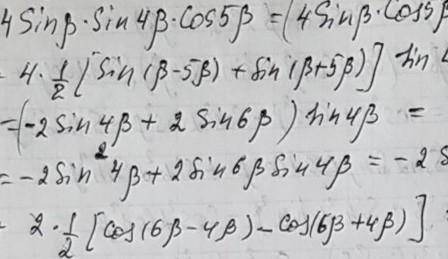 4 Sinβ·Sin 4β·Cos5β = (4 Sinβ·Cos5β
4·½ [Sin(β-5β) + Sin(β+5β)] Sin 4
=(-2 Sin 4β + 2 Sin6β) Sin4β =
= -2 Sin² 4β + 2 Sin6β Sin 4β = -2 S
2·½ [Cos(6β-4β) - Cos(6β+4β)]